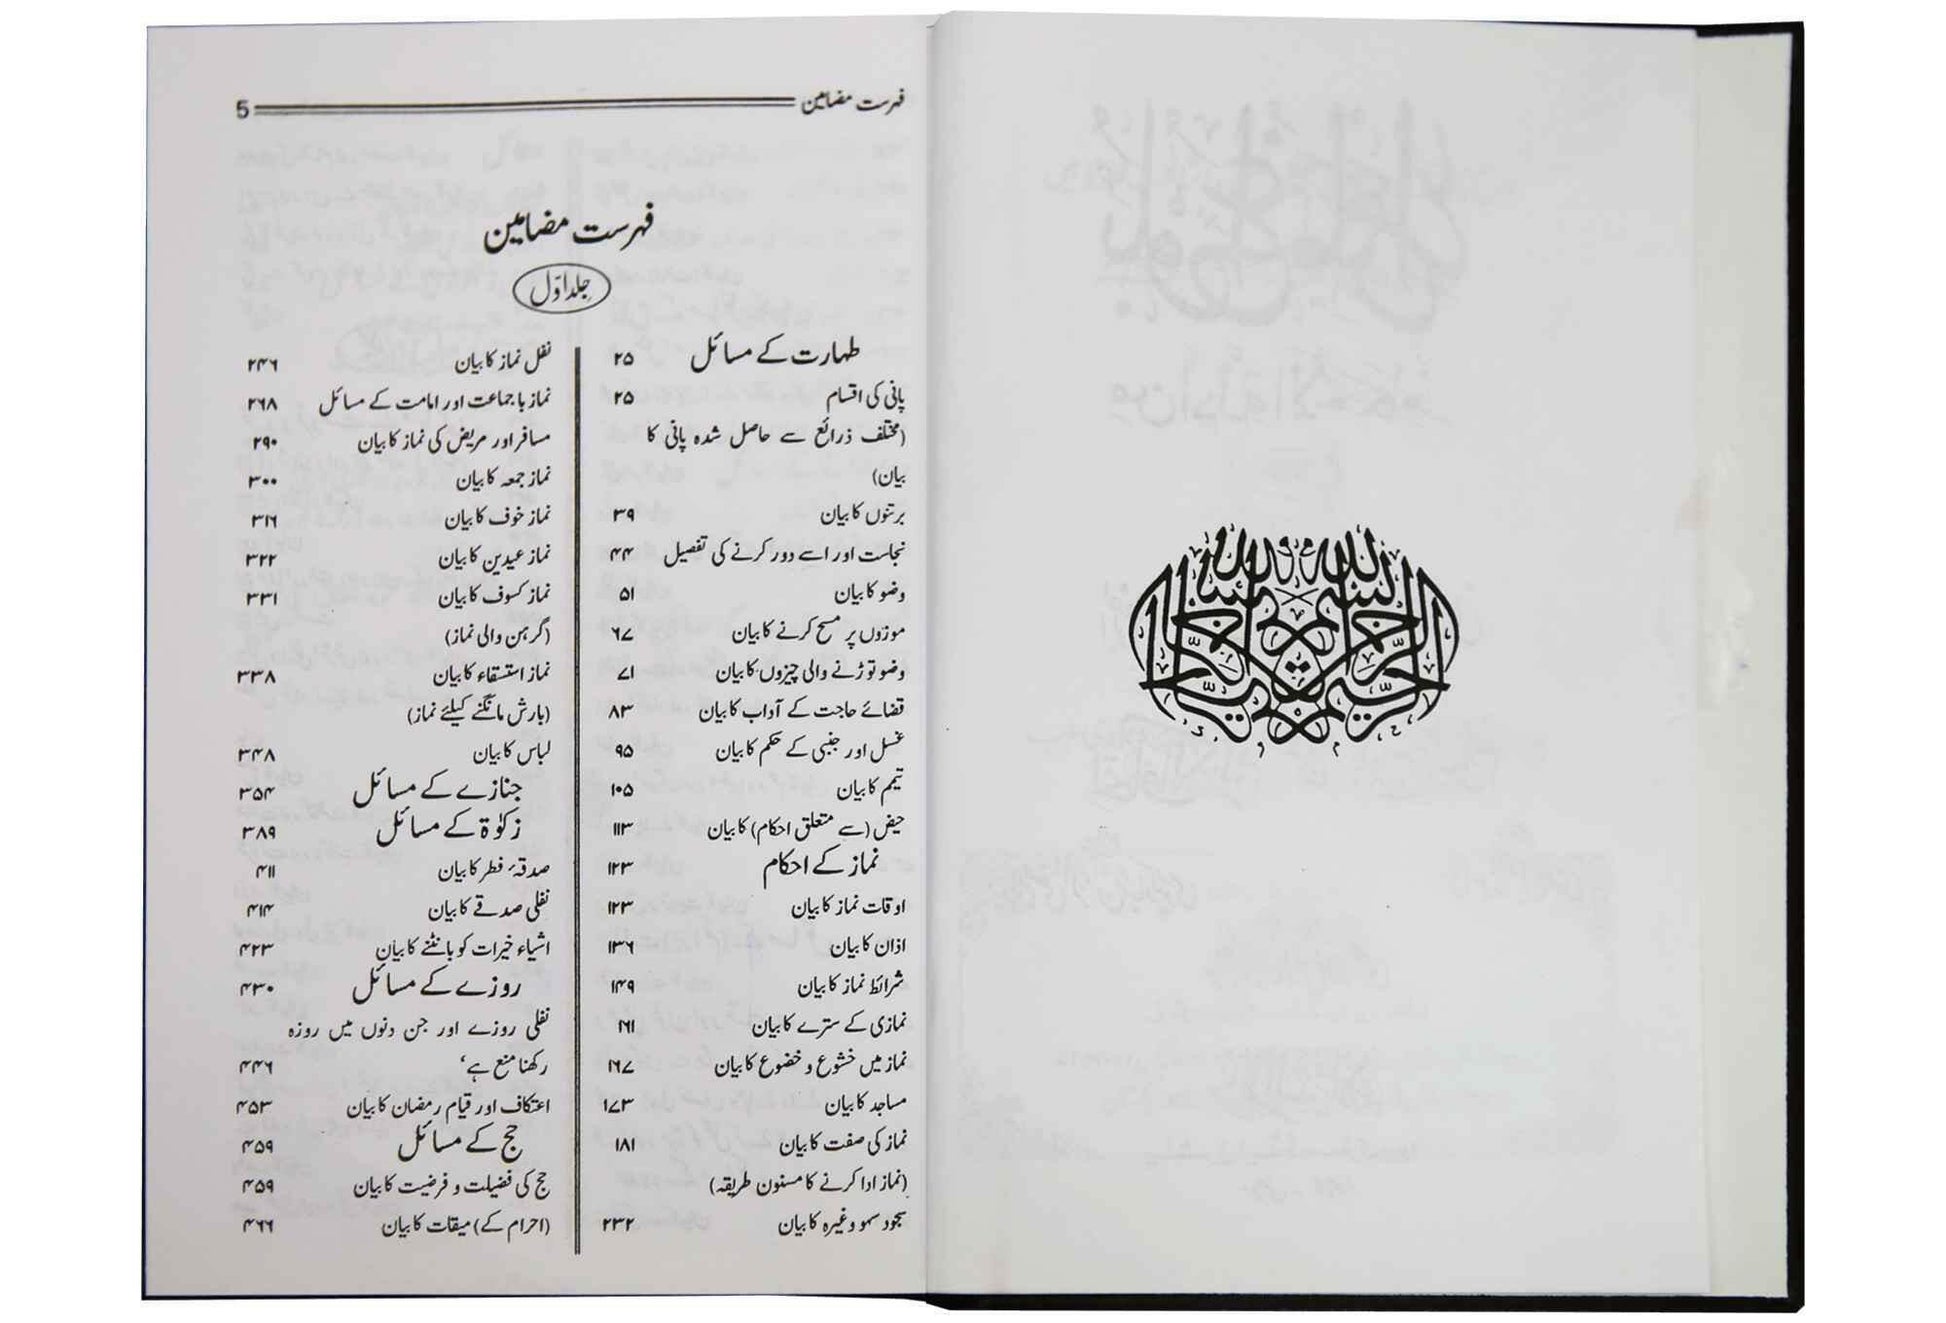 فہرست مضامین 5
فہرست مضامین
جلد اوّل
طہارت کے مسائل ۲۵
پانی کی اقسام ۲۵
(مختلف ذرائع سے حاصل شدہ پانی کا
بیان)
برتنوں کا بیان ۳۹
نجاست اور اسے دور کرنے کی تفصیل ۴۴
وضو کا بیان ۵۱
موزوں پر مسح کرنے کا بیان ۶۷
وضو توڑنے والی چیزوں کا بیان ۷۱
قضائے حاجت کے آداب کا بیان ۸۳
غسل اور جنبی کے حکم کا بیان ۹۵
تیمم کا بیان ۱۰۵
حیض (سے متعلق احکام) کا بیان ۱۱۳
نماز کے احکام ۱۲۳
اوقات نماز کا بیان ۱۲۳
اذان کا بیان ۱۳۶
شرائط نماز کا بیان ۱۴۹
نمازی کے سترے کا بیان ۱۶۱
نماز میں خشوع و خضوع کا بیان ۱۶۷
مساجد کا بیان ۱۷۳
نماز کی صفت کا بیان ۱۸۱
(نماز ادا کرنے کا مسنون طریقہ)
سجود سہو وغیرہ کا بیان ۲۳۲
نفل نماز کا بیان ۲۴۶
نماز باجماعت اور امامت کے مسائل ۲۶۸
مسافر اور مریض کی نماز کا بیان ۲۹۰
نماز جمعہ کا بیان ۳۰۰
نماز خوف کا بیان ۳۱۶
نماز عیدین کا بیان ۳۲۲
نماز کسوف کا بیان ۳۳۱
(گرہن والی نماز)
نماز استسقاء کا بیان ۳۳۸
(بارش مانگنے کیلئے نماز)
لباس کا بیان ۳۴۸
جنازے کے مسائل ۳۵۴
زکوٰۃ کے مسائل ۳۸۹
صدقۂ فطر کا بیان ۴۱۱
نفلی صدقے کا بیان ۴۱۴
اشیاء خیرات کو بانٹنے کا بیان ۴۲۳
روزے کے مسائل ۴۳۰
نفلی روزے اور جن دنوں میں روزہ
رکھنا منع ہے‘ ۴۴۶
اعتکاف اور قیام رمضان کا بیان ۴۵۳
حج کے مسائل ۴۵۹
حج کی فضیلت و فرضیت کا بیان ۴۵۹
(احرام کے) میقات کا بیان ۴۶۶
بسم الله الرحمن الرحيم